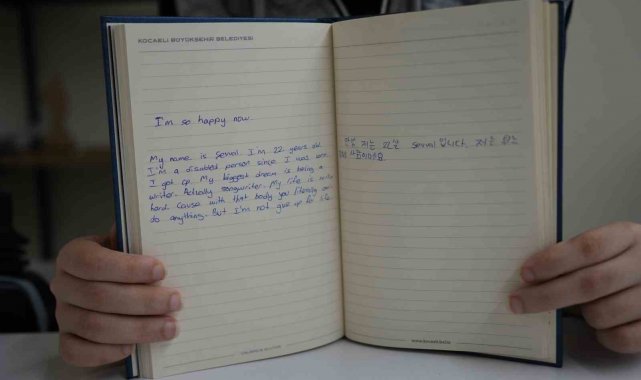 KOCAELİ BÜYÜKŞEHİR BELEDİYESİ
I'm so happy now
My name is Serval I'm 22 years old.
I'm a disabled person since I was born
I got cp. My biggest dream is being a
writer. Actually songwriter. My life is
hard. Cause with that body you literally
do anything. But I'm not give up for life.
저는 22살 Serval 입니다. 저는
www.kocaeli.bel.tr